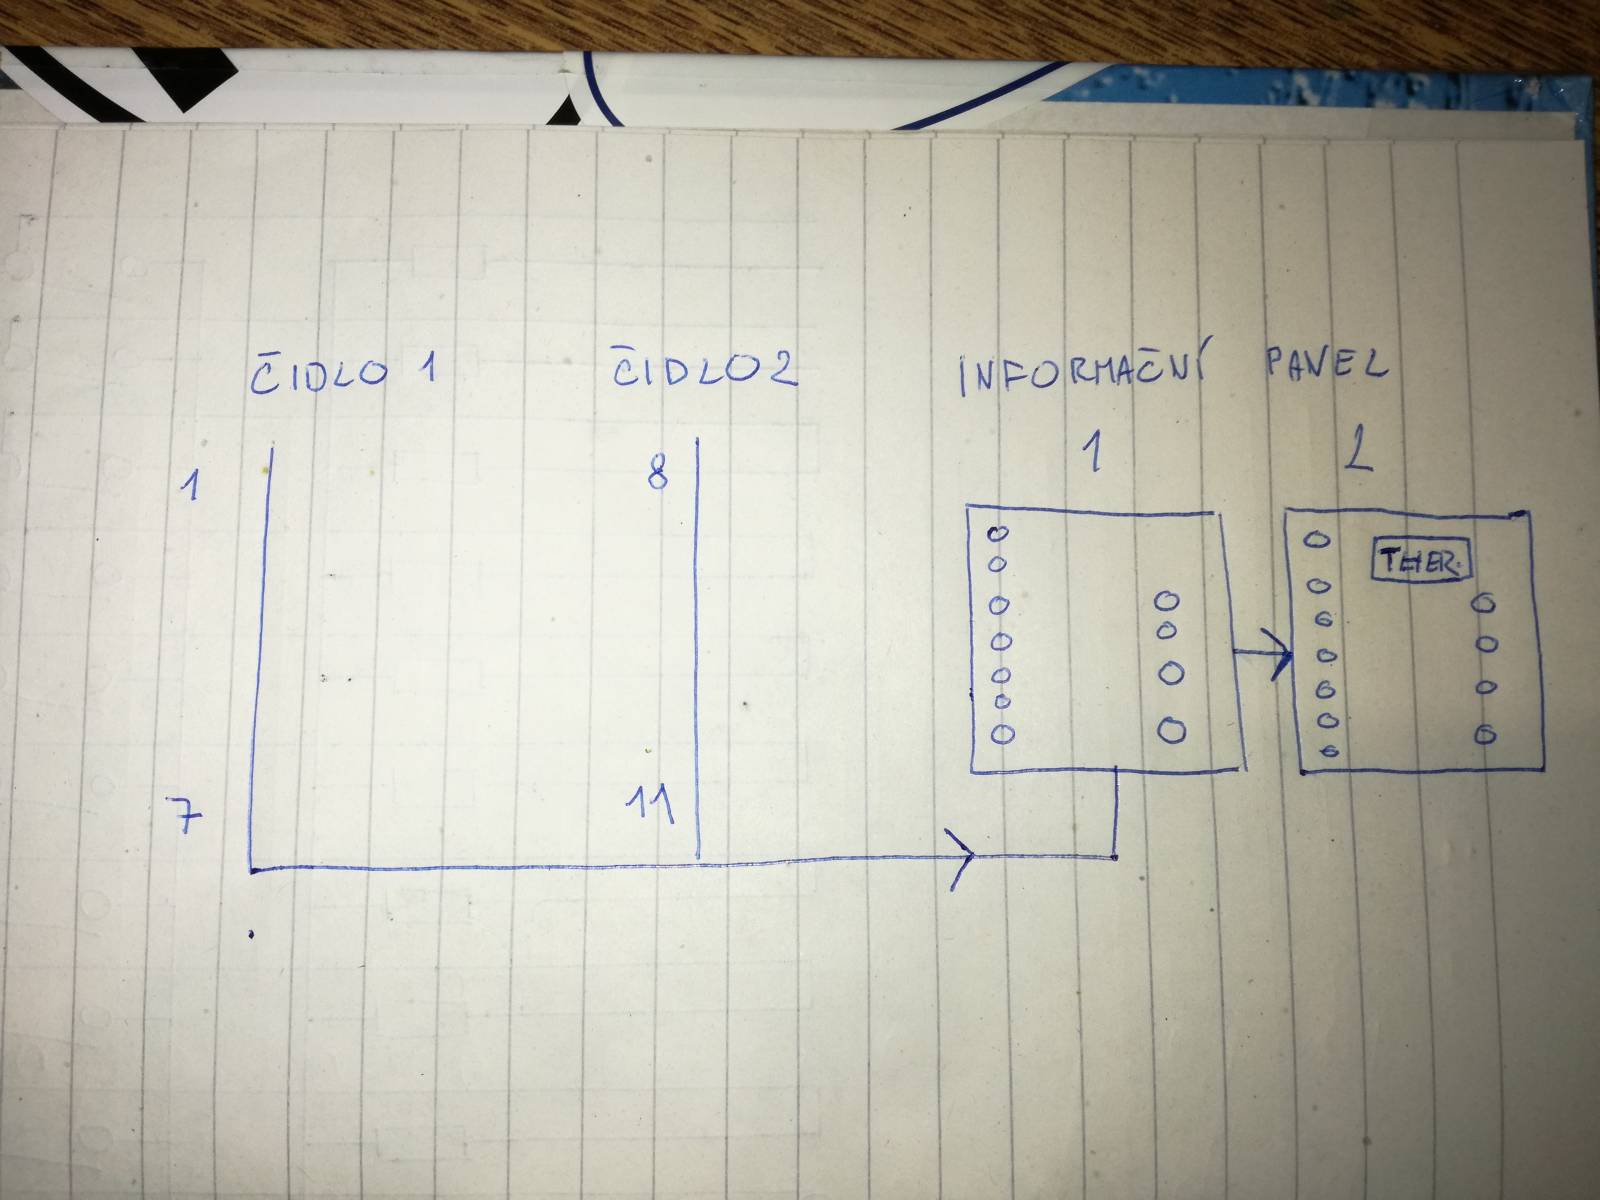 ČIDLO 1
ČIDLO 2
INFORMAČNÍ PANEL
1
2
1
8
7
11
THER.